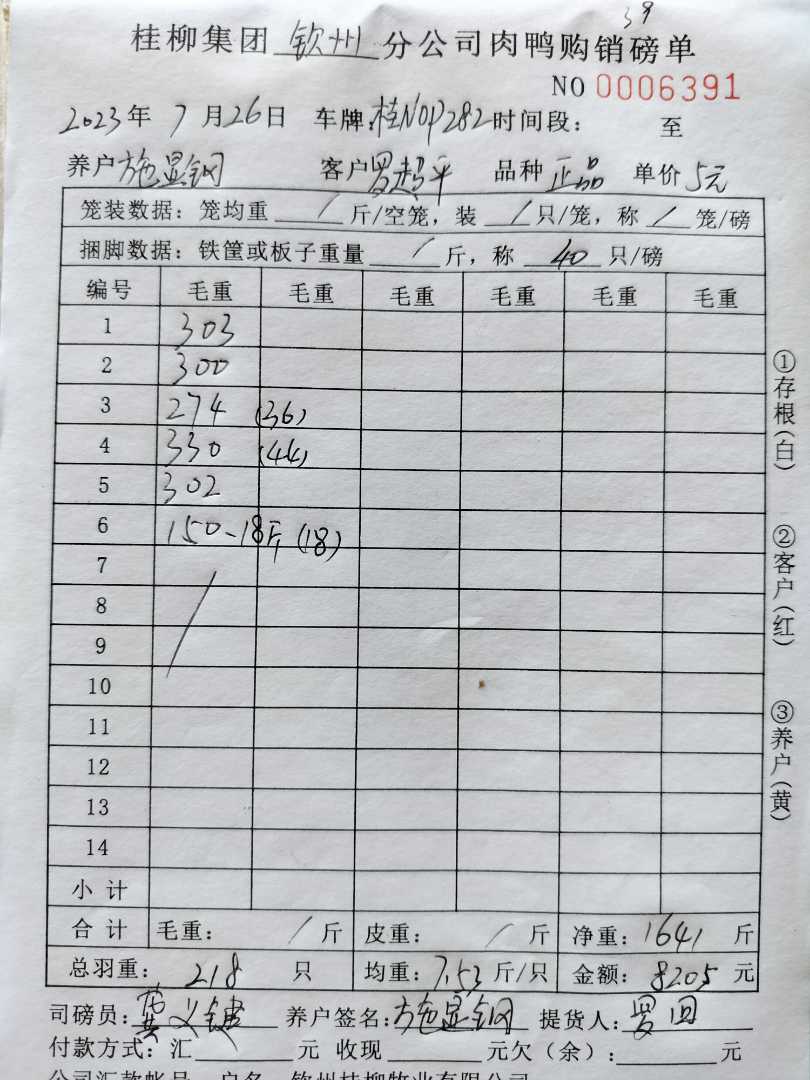 39
桂柳集团 钦州 分公司肉鸭购销磅单
NO 0006391
2023年 7月26日 车牌:桂N0P282时间段: 至
养户 施显钢 客户 罗超平 品种 正品 单价 5元
笼装数据:笼均重 / 斤/空笼,装 / 只/笼,称 / 笼/磅
捆脚数据:铁筐或板子重量 / 斤,称 40 只/磅
编号 毛重 毛重 毛重 毛重 毛重 毛重
1 303
2 300
3 274 (36)
4 330 (44)
5 302
6 150-18斤(18)
7
8 /
9
10
11
12
13
14
小计
合计 毛重: / 斤 皮重: / 斤 净重:1641 斤
总羽重: 218 只 均重:7.53斤/只 金额:8205元
司磅员:黄义健 养户签名:施显钢 提货人:罗回
付款方式:汇 元 收现 元欠(余): 元
公司汇款帐号 户名 钦州桂柳牧业有限公司
①存根(白)
②客户(红)
③养户(黄)